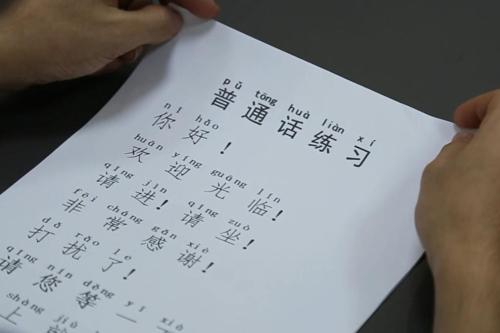 pǔ tōng huà liàn xí
普通话练习
nǐ hǎo
你好！
huān yíng guāng lín
欢迎光临！
qǐng jìn qǐng zuò
请进！请坐！
fēi cháng gǎn xiè
非常感谢！
dǎ rǎo le
打扰了！
qǐng nín děng yí xi
请您等一
shàng
上